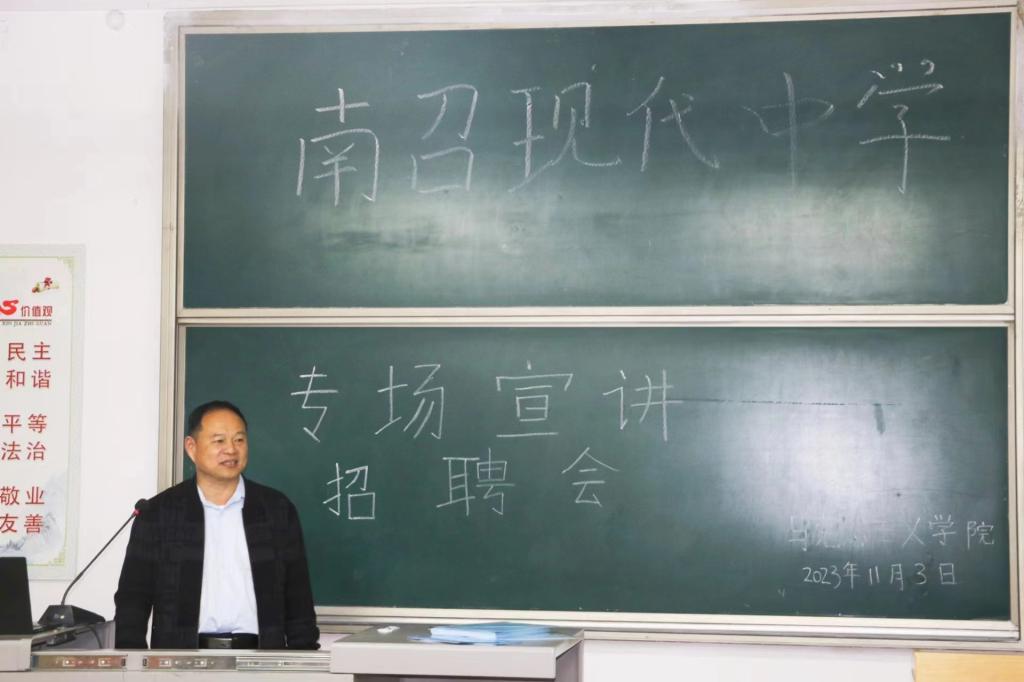 南召现代中学
专场宣讲
招聘会
学院
2023年11月3日
价值观
XIN JIA ZHI GUAN
民主
和谐
平等
法治
敬业
友善